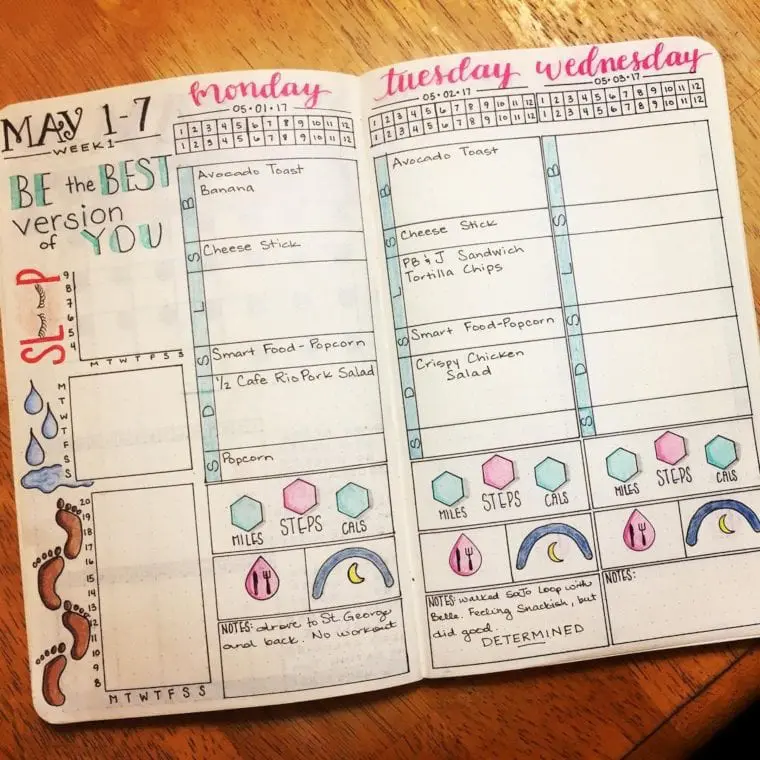 MAY 1-7
WEEK 1
BE the BEST
version
of YOU
SLEEP
9
8
7
6
5
4
M T W T F S S
M
T
W
T
F
S
S
20
19
18
17
16
15
14
13
12
11
10
9
8
M T W T F S S
monday
05·01·17
1 2 3 4 5 6 7 8 9 10 11 12
1 2 3 4 5 6 7 8 9 10 11 12
B
Avocado Toast
Banana
S
Cheese Stick
L
S
Smart Food-Popcorn
D
1/2 Cafe Rio Pork Salad
S
Popcorn
MILES STEPS CALS
NOTES: drove to St. George
and back. No workout
tuesday
05·02·17
1 2 3 4 5 6 7 8 9 10 11 12
1 2 3 4 5 6 7 8 9 10 11 12
B
Avocado Toast
S
Cheese Stick
L
PB & J Sandwich
Tortilla Chips
S
Smart Food-Popcorn
D
Crispy Chicken
Salad
S
MILES STEPS CALS
NOTES: walked SoJo Loop with
Belle. Feeling Snackish, but
did good.
DETERMINED
wednesday
05·03·17
1 2 3 4 5 6 7 8 9 10 11 12
1 2 3 4 5 6 7 8 9 10 11 12
B
S
L
S
D
S
MILES STEPS CALS
NOTES: